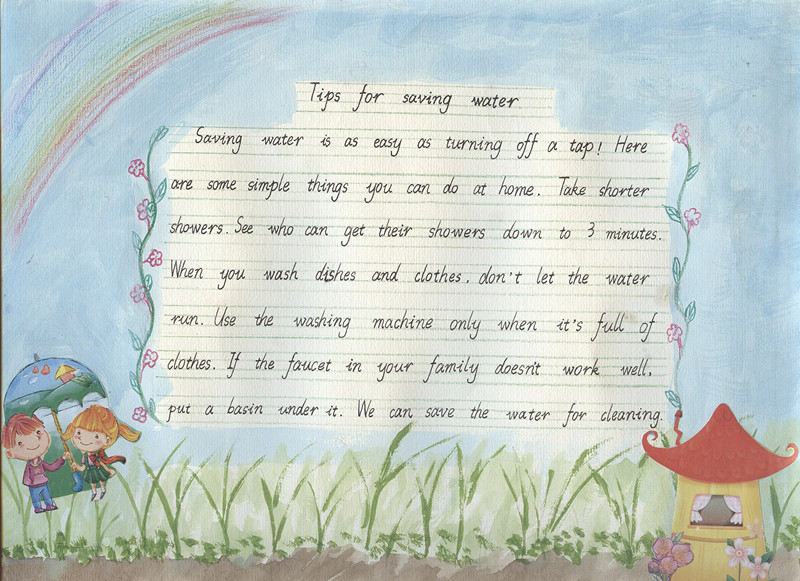 Tips for saving water
Saving water is as easy as turning off a tap! Here
are some simple things you can do at home. Take shorter
showers. See who can get their showers down to 3 minutes.
When you wash dishes and clothes, don't let the water
run. Use the washing machine only when it's full of
clothes. If the faucet in your family doesn't work well,
put a basin under it. We can save the water for cleaning.